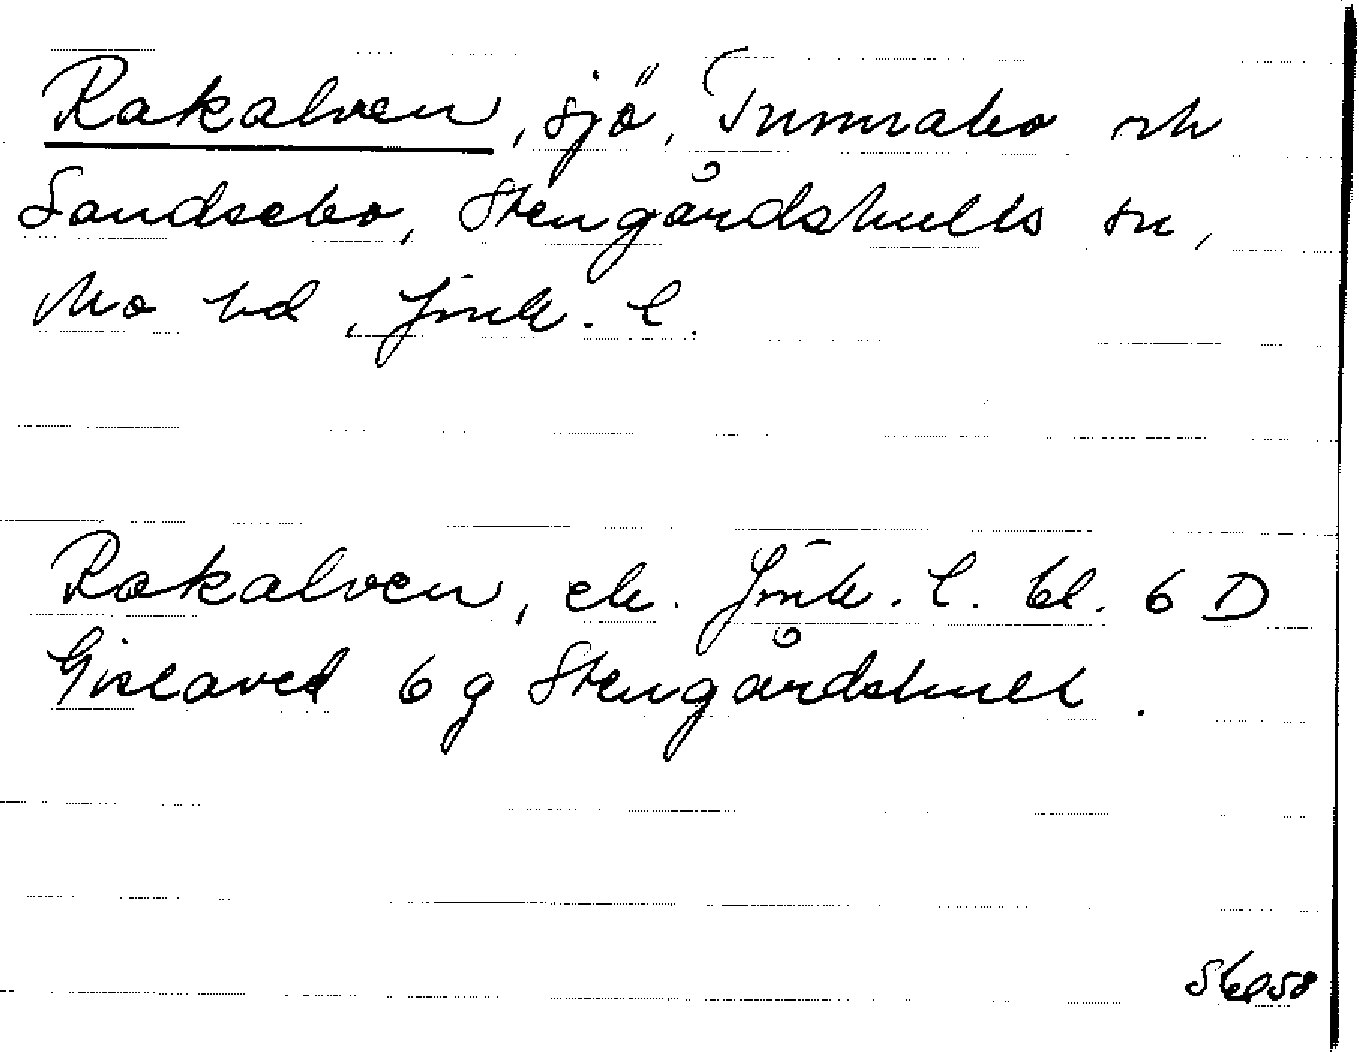 Rakalven, sjö, Tunnabo och
Sandsebo, Stengårdshults sn,
Mo hd, Jönk. l.
Rakalven, ek. Jönk. l. bl. 6 D
Gislaved 6 g Stengårdshult.